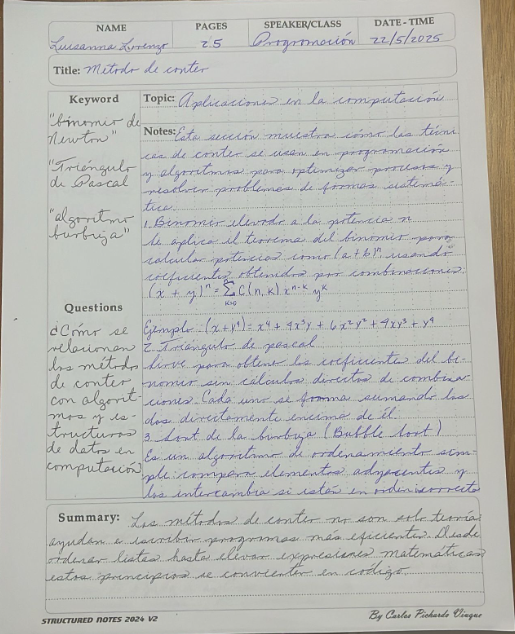 NAME PAGES SPEAKER/CLASS DATE - TIME
Luisanna Lorenzo 25 Programación 22/5/2025
Title: Método de conteo
Keyword
"binomio de
Newton"
"Triángulo
de Pascal
"algoritmo
burbuja"
Questions
¿Cómo se
relacionan
los método
de conteo
con algorit-
mos y es-
tructuras
de datos en
computación
Topic: Aplicaciones en la computación
Notes: Esta sección muestra cómo las técni
cas de conteo se usan en programación
y algoritmos para optimizar procesos y
resolver problemas de formas sistemá-
tica.
1. Binomio elevado a la potencia n
Se aplica el teorema del binomio para
calcular potencias como (a+b)ⁿ, usando
coeficientes obtenidos por combinaciones.
(x + y)ⁿ = Σ C(n,k) xⁿ⁻ᵏ yᵏ
k=0
Ejemplo: (x+y⁴) = x⁴ + 4x³y + 6x²y² + 4xy³ + y⁴
2. Triángulo de pascal
Sirve para obtener los coeficientes del bi-
nomio sin cálculos directos de combina-
ciones. Cada uno se forma sumando los
dos directamente encima de él.
3. Sort de la burbuja (Bubble Sort)
Es un algoritmo de ordenamiento sim-
ple: compara elementos adyacentes y
los intercambia si están en orden incorrecto
Summary: Los métodos de conteo no son solo teoría
ayudan a escribir programas más eficientes. Desde
ordenar listas hasta elevar expresiones matemáticas
estos principios se convierten en código.
STRUCTURED NOTES 2024 V2 By Carlos Pichardo Vinque